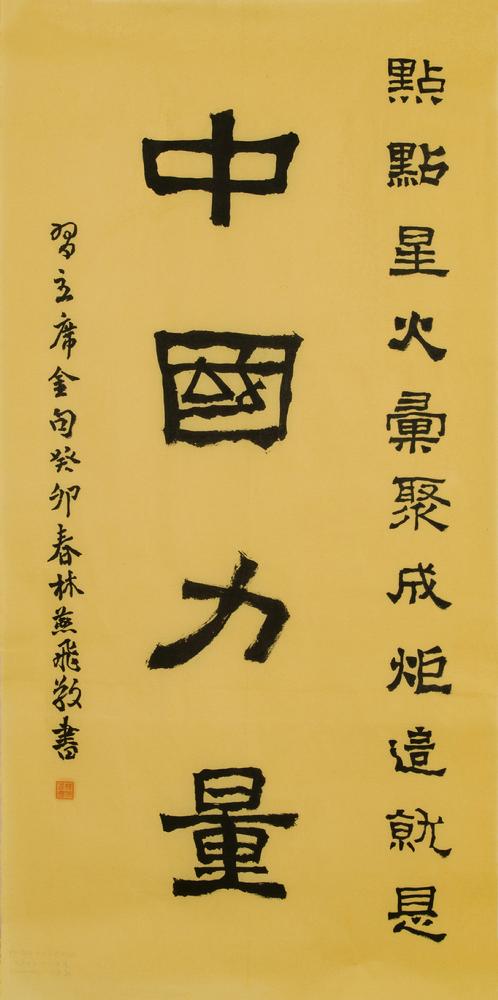 點點星火彙聚成炬這就是
中國力量
習主席金句癸卯春林燕飛敬書